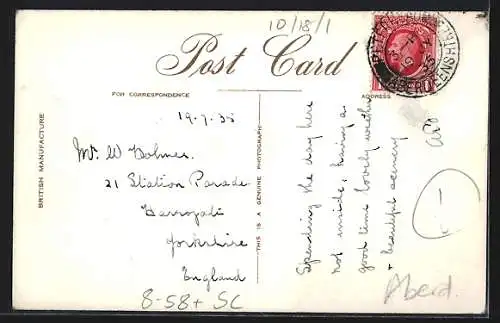 10/18/1
Post Card
FOR CORRESPONDENCE
ADDRESS
BRITISH MANUFACTURE
THIS IS A GENUINE PHOTOGRAPH
19.7.35
Mr. W Holmes.
21 Station Parade
Harrogate
Yorkshire
England
Spending the day here
not inside, having a
good time lovely weather
+ beautiful scenery
8-58+ SC
Aberd.